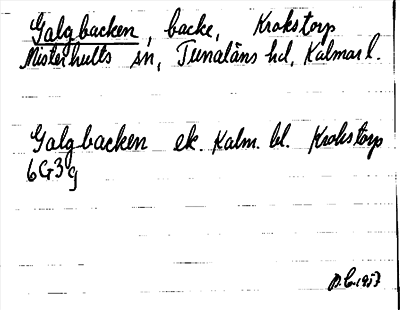 Galgbacken, backe, Krokstorp
Misterhults sn, Tunaläns hd, Kalmar l.
Galgbacken ek. Kalm. bl. Krokstorp
6G3g
1957